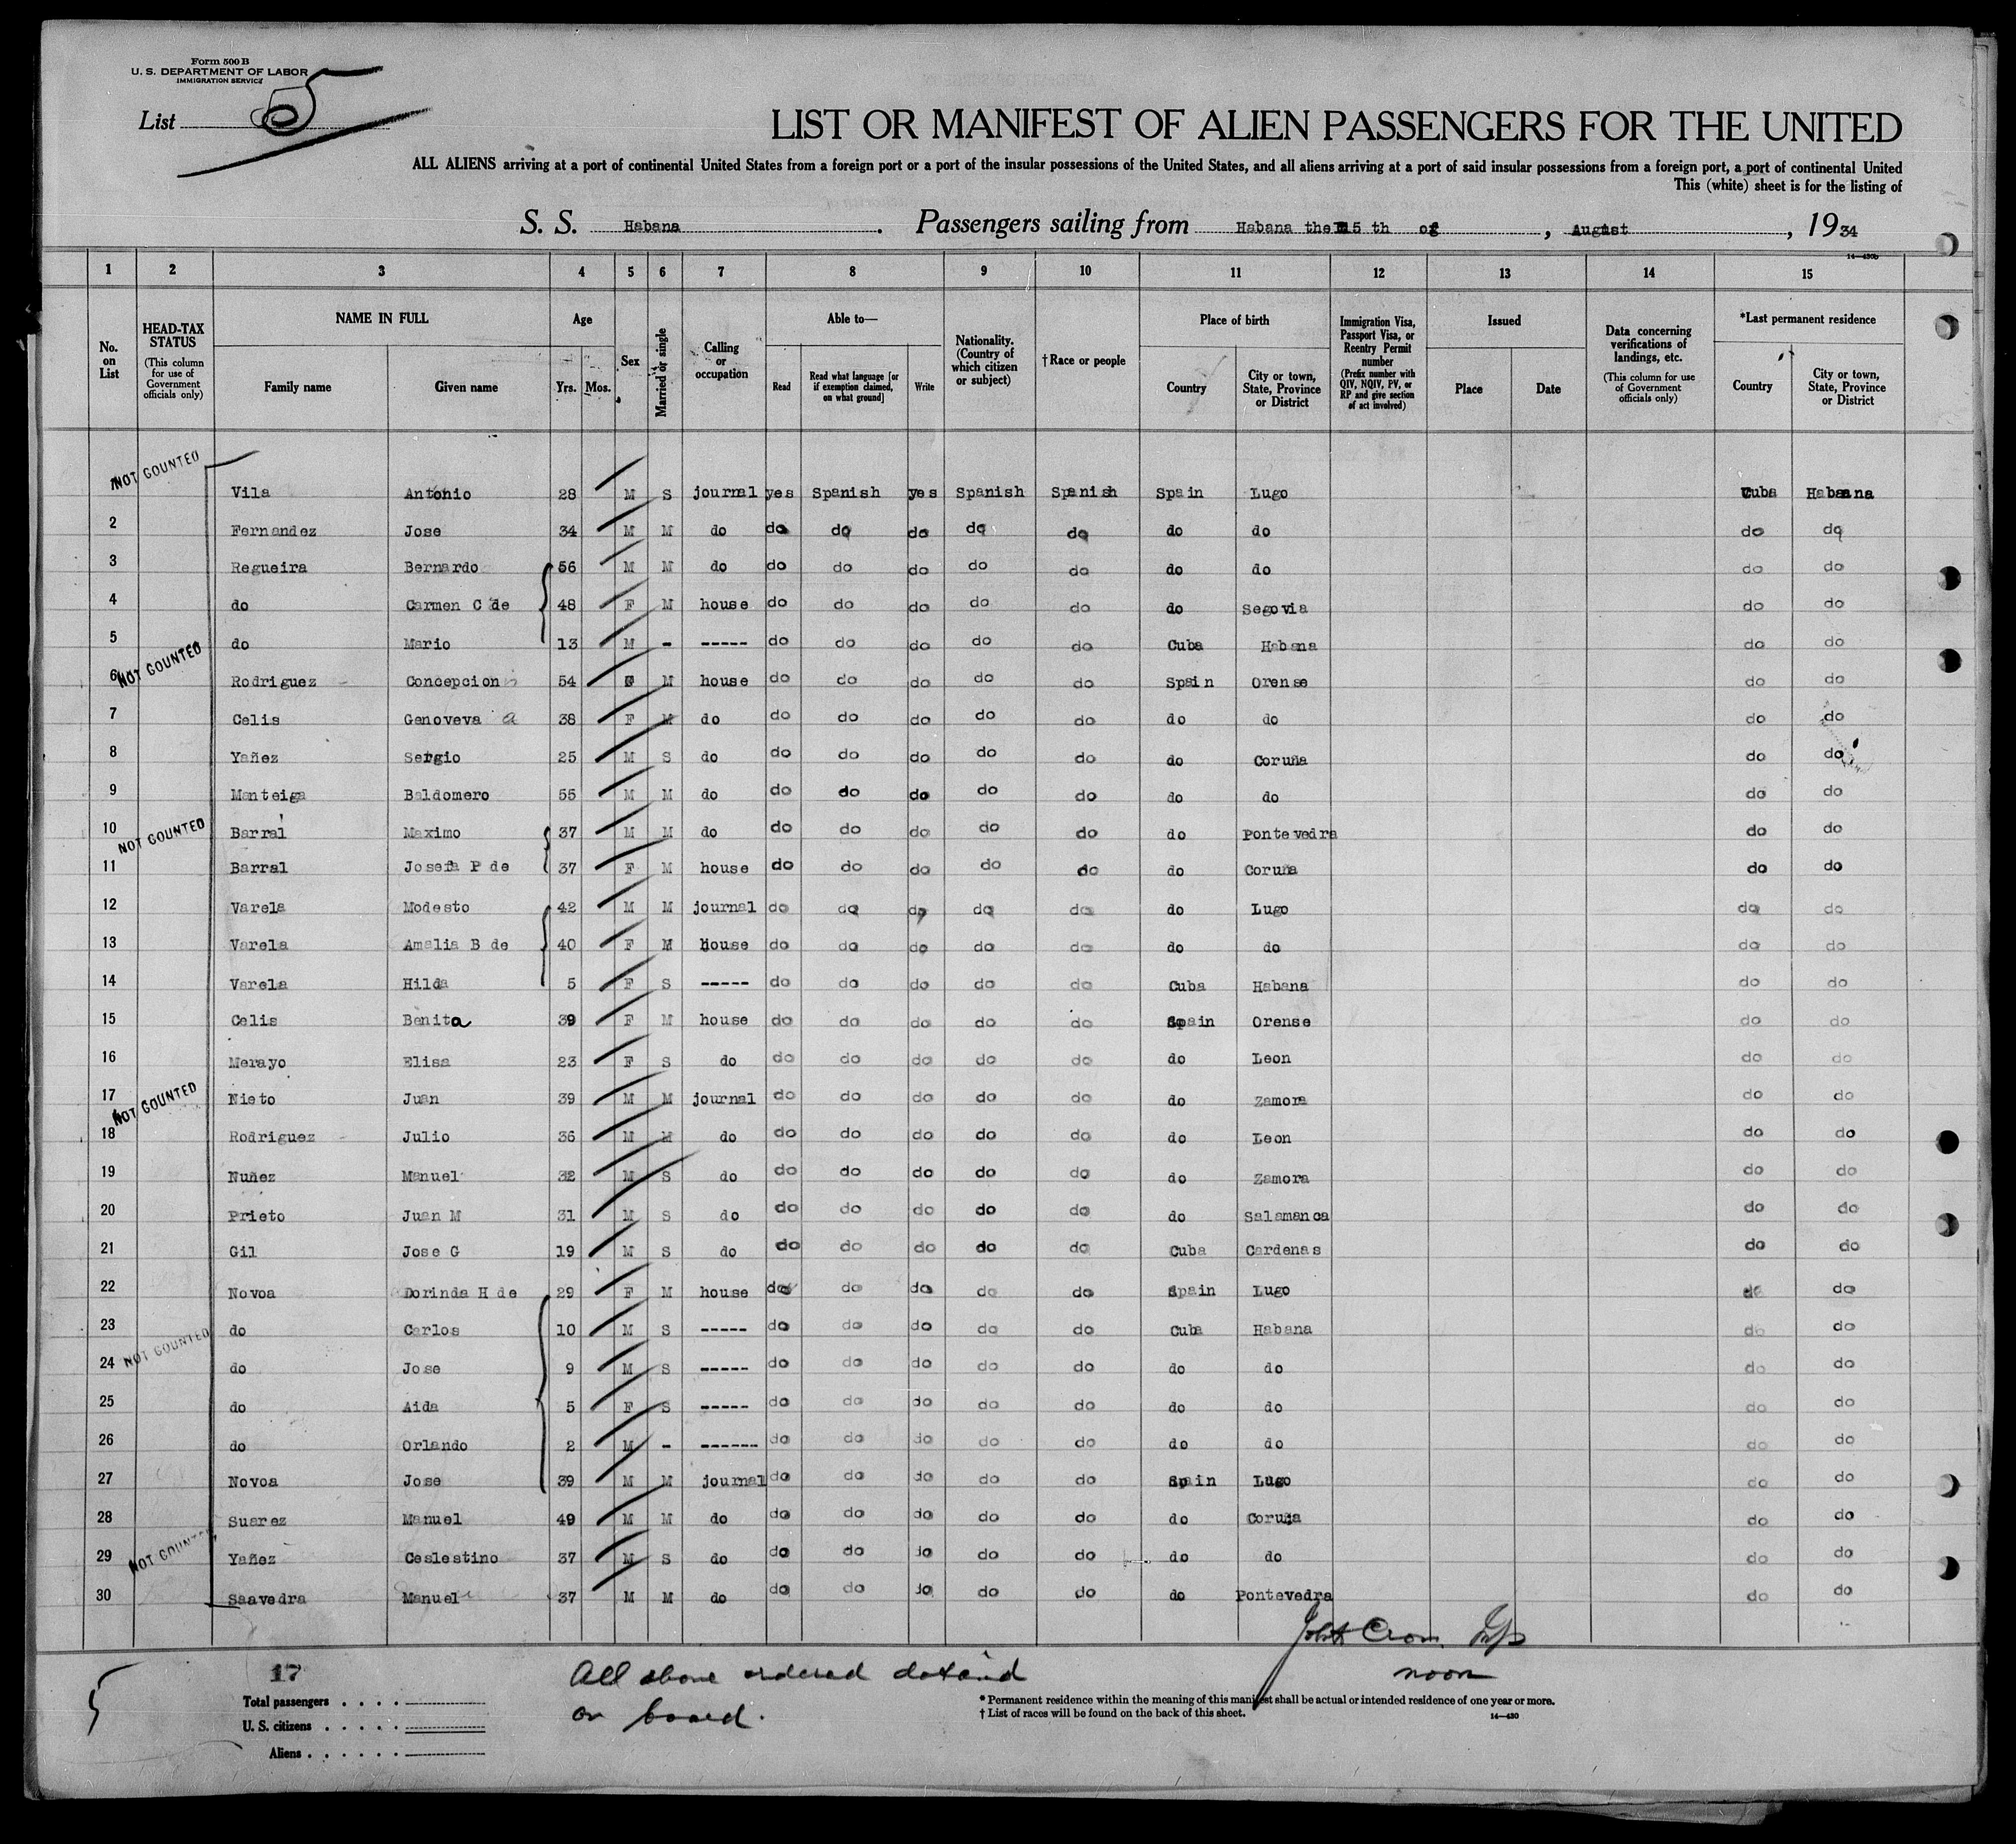 Form 500 B
U. S. DEPARTMENT OF LABOR
IMMIGRATION SERVICE
List 5
LIST OR MANIFEST OF ALIEN PASSENGERS FOR THE UNITED
ALL ALIENS arriving at a port of continental United States from a foreign port or a port of the insular possessions of the United States, and all aliens arriving at a port of said insular possessions from a foreign port, a port of continental United
This (white) sheet is for the listing of
S. S. Habana . Passengers sailing from Habana the 15 th of , August , 1934
14—430b
1 2 3 4 5 6 7 8 9 10 11 12 13 14 15
No. on List
HEAD-TAX STATUS (This column for use of Government officials only)
NAME IN FULL Family name Given name
Age Yrs. Mos.
Sex
Married or single
Calling or occupation
Able to— Read Read what language [or if exemption claimed, on what ground] Write
Nationality. (Country of which citizen or subject)
†Race or people
Place of birth Country City or town, State, Province or District
Immigration Visa, Passport Visa, or Reentry Permit number (Prefix number with QIV, NQIV, PV, or RP and give section of act involved)
Issued Place Date
Data concerning verifications of landings, etc. (This column for use of Government officials only)
*Last permanent residence Country City or town, State, Province or District
NOT COUNTED
1 Vila Antonio 28 M S journal yes Spanish yes Spanish Spanish Spain Lugo Cuba Habana
2 Fernandez Jose 34 M M do do do do do do do do do do
3 Regueira Bernardo 56 M M do do do do do do do do do do
4 do Carmen C de 48 F M house do do do do do do Segovia do do
5 do Mario 13 M - ----- do do do do do Cuba Habana do do
NOT COUNTED
6 Rodriguez Concepcion 54 M house do do do do do Spain Orense do do
7 Celis Genoveva a 38 F M do do do do do do do do do do
8 Yañez Sergio 25 M S do do do do do do do Coruña do do
9 Manteiga Baldomero 55 M M do do do do do do do do do do
NOT COUNTED
10 Barral Maximo 37 M M do do do do do do do Pontevedra do do
11 Barral Josefa P de 37 F M house do do do do do do Coruña do do
12 Varela Modesto 42 M M journal do do do do do do Lugo do do
13 Varela Amalia B de 40 F M house do do do do do do do do do
14 Varela Hilda 5 F S ----- do do do do do Cuba Habana do do
15 Celis Benita 39 F M house do do do do do Spain Orense do do
16 Merayo Elisa 23 F S do do do do do do do Leon do do
17 Nieto Juan 39 M M journal do do do do do do Zamora do do
NOT COUNTED
18 Rodriguez Julio 36 M M do do do do do do do Leon do do
19 Nuñez Manuel 32 M S do do do do do do do Zamora do do
20 Prieto Juan M 31 M S do do do do do do do Salamanca do do
21 Gil Jose G 19 M S do do do do do do Cuba Cardenas do do
22 Novoa Dorinda H de 29 F M house do do do do do Spain Lugo do do
23 do Carlos 10 M S ----- do do do do do Cuba Habana do do
NOT COUNTED
24 do Jose 9 M S ----- do do do do do do do do do
25 do Aida 5 F S ----- do do do do do do do do do
26 do Orlando 2 M - ------ do do do do do do do do do
27 Novoa Jose 39 M M journal do do do do do Spain Lugo do do
28 Suarez Manuel 49 M M do do do do do do do Coruña do do
NOT COUNTED
29 Yañez Ceslestino 37 M S do do do do do do do do do do
30 Saavedra Manuel 37 M M do do do do do do do Pontevedra do do
noon
5
17
All above ordered detained
on board.
Total passengers . . . .
U. S. citizens . . . . .
Aliens . . . . . .
* Permanent residence within the meaning of this manifest shall be actual or intended residence of one year or more.
† List of races will be found on the back of this sheet.
14—430